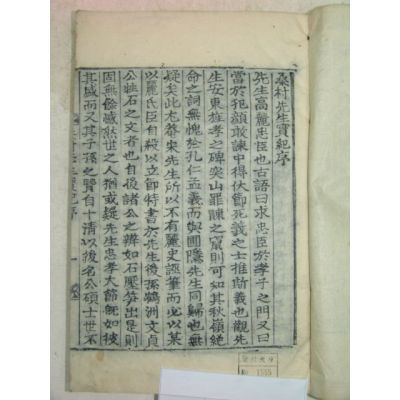 桑村先生實紀序
先生高麗忠臣也古語曰求忠臣於孝子之門又曰
當於犯顔敢諫中得伏節死義之士推斯義也觀先
生安東雄孝之碑突山罪諫之竄則可知其秋嶺絶
命之詞無愧於孔仁孟義而與圃隱先生同歸也無
疑矣此尤菴宋先生所以不有麗史誣筆而必以某
以麗氏臣自殺以立節特書於先生後孫鶴洲文貞
公牲石之文者也自後諸公之辨如石壓笋出是則
固無餘憾然世之人猶或疑先生忠孝大節旣如彼
其盛而又其子孫之賢自十淸以後名公碩士世不
1555